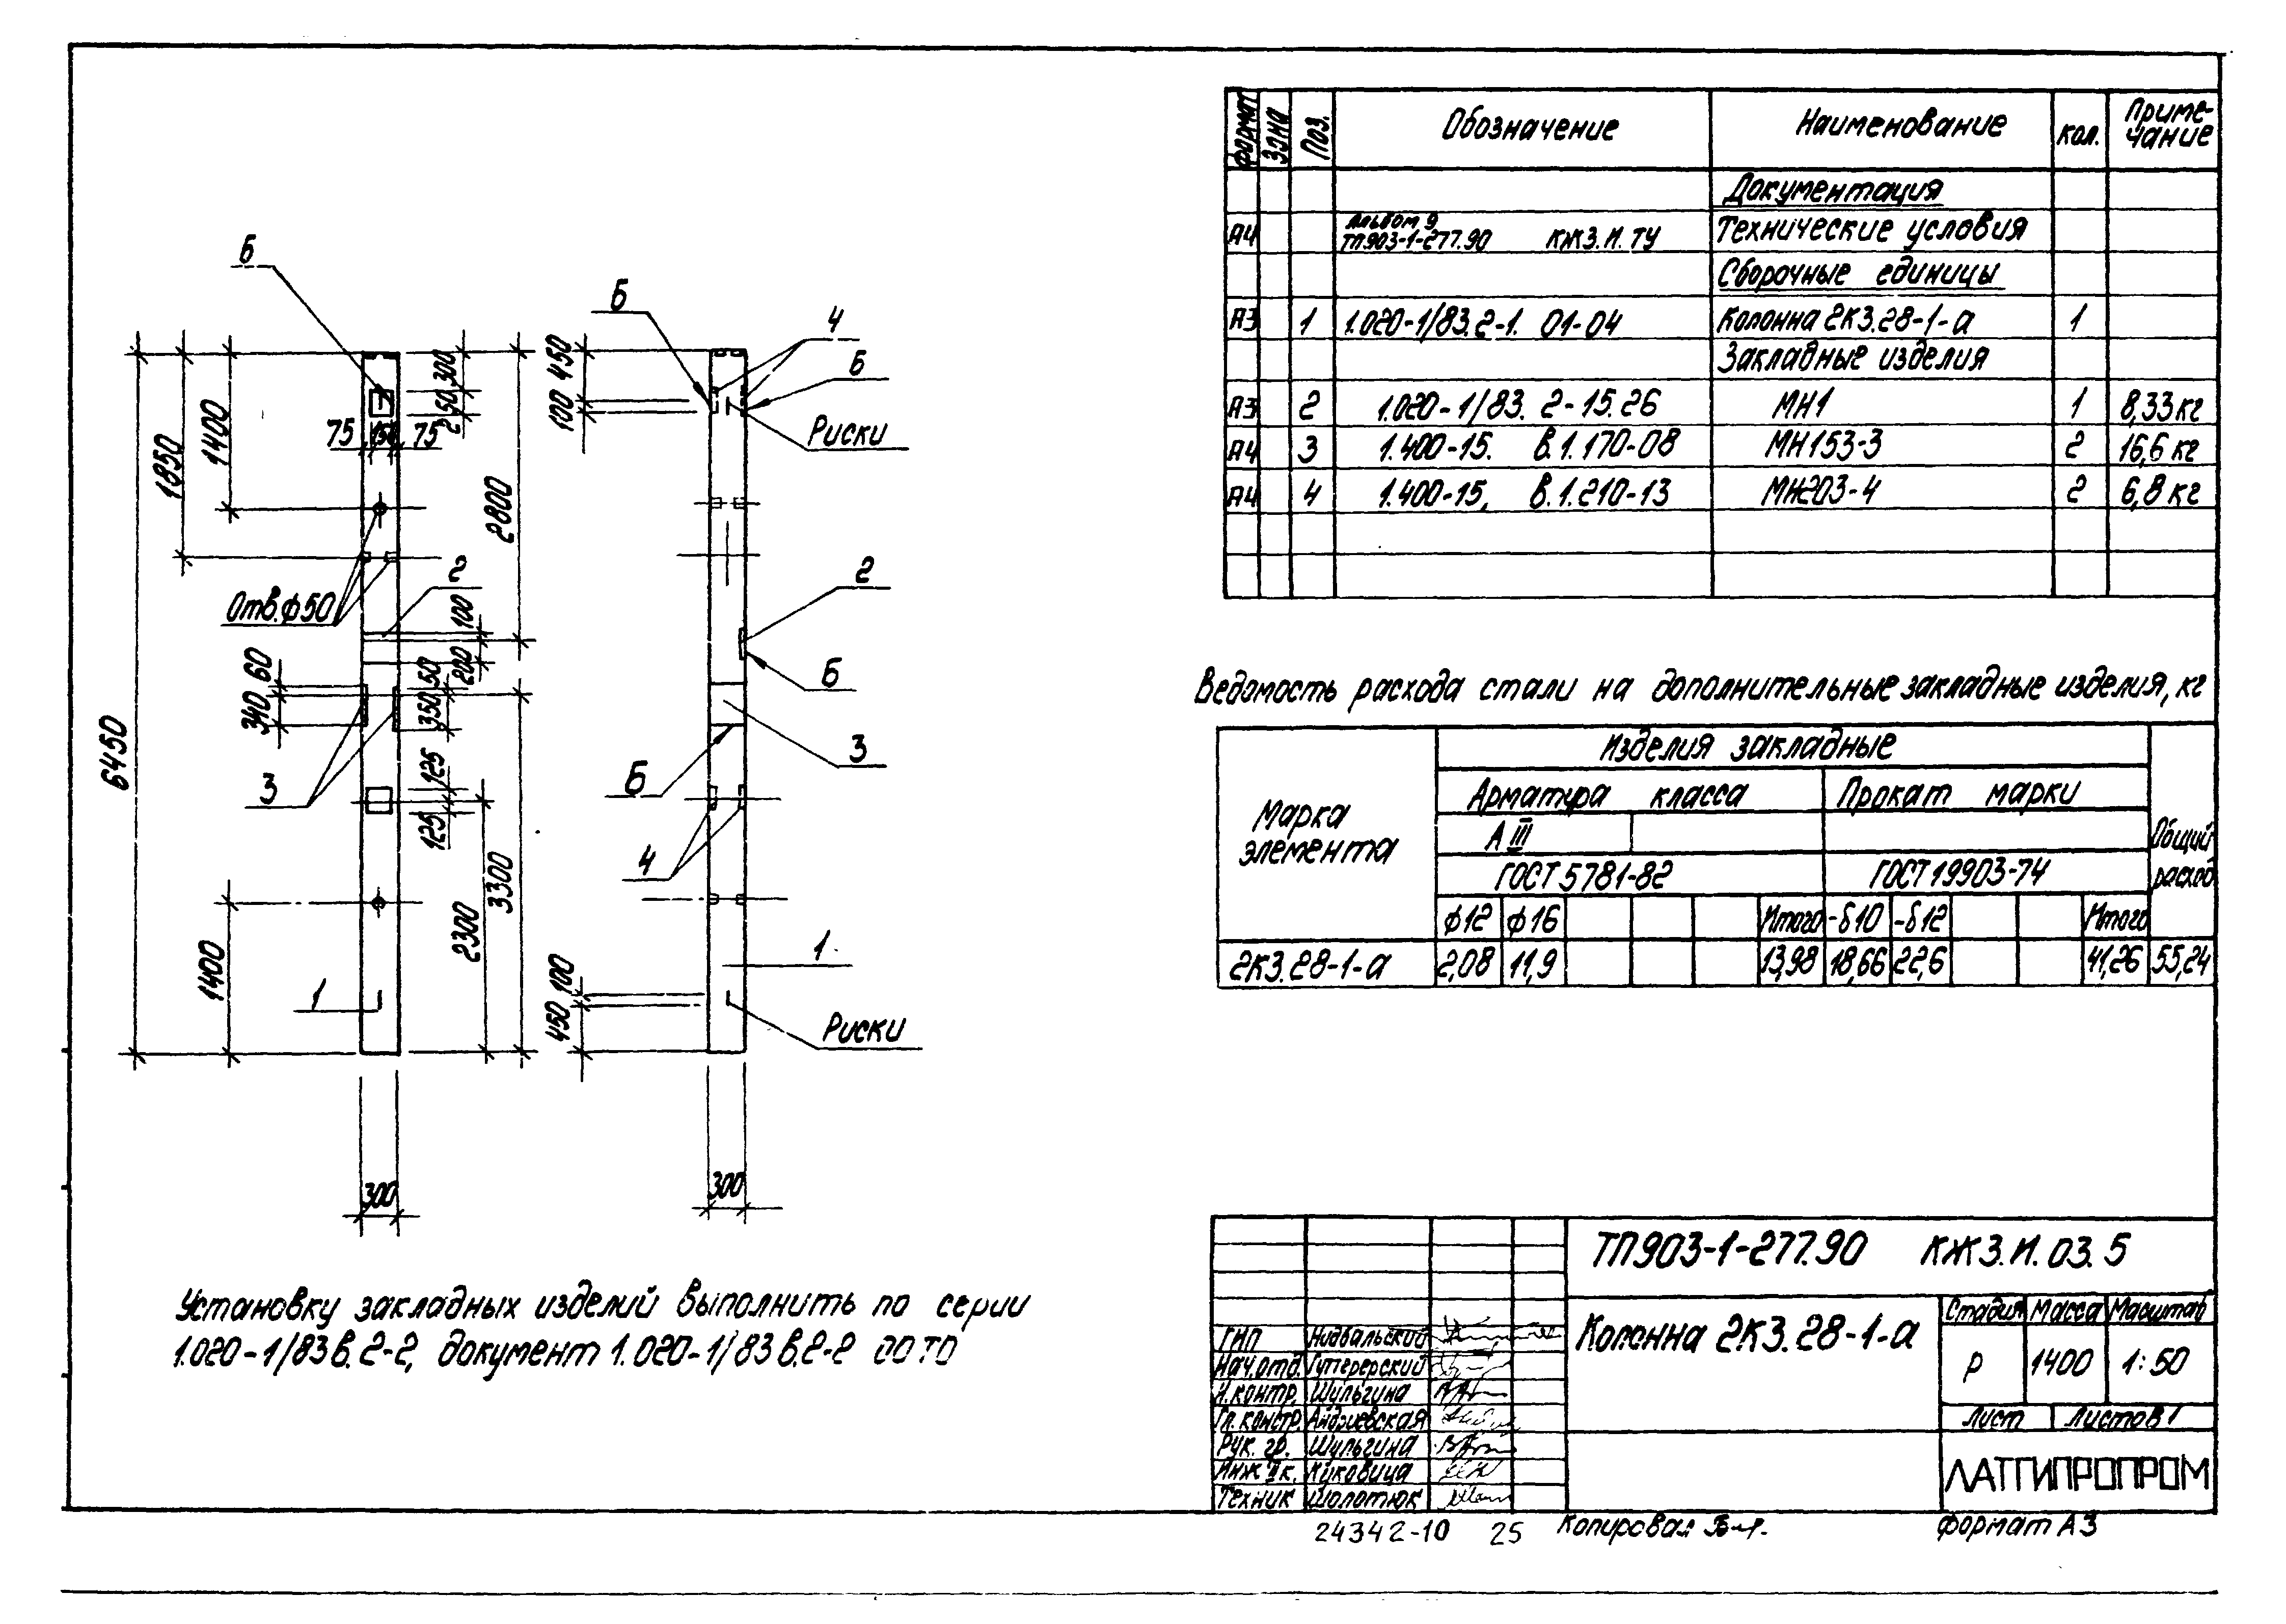 Б
6450
1850
1400
75 150 75
300
250
2800
Отв.ф50
2
100
200
60
340
50
350
3
125
125
3300
2300
1400
1
300
Б
4
Б
450
100
Риски
2
Б
3
Б
4
1
100
450
Риски
300
Установку закладных изделий выполнить по серии
1.020-1/83 в.2-2, документ 1.020-1/83 в.2-2 00 ТО
Формат Зона Поз. Обозначение Наименование Кол. Приме-
чание
Документация
А4 Альбом 9
ТП903-1-277.90 КЖ3.И.ТУ Технические условия
Сборочные единицы
А3 1 1.020-1/83.2-1. 01-04 Колонна 2К3.28-1-а 1
Закладные изделия
А3 2 1.020-1/83. 2-15.26 МН1 1 8,33кг
А4 3 1.400-15. В.1.170-08 МН153-3 2 16,6 кг
А4 4 1.400-15, В.1.210-13 МН203-4 2 6,8 кг
Ведомость расхода стали на дополнительные закладные изделия, кг
Марка
элемента
Изделия закладные
Общий
расход
Арматура класса Прокат марки
А III
ГОСТ 5781-82 ГОСТ 19903-74
ф12 ф16 Итого -δ10 -δ12 Итого
2К3.28-1-а 2,08 11,9 13,98 18,66 22,6 41,26 55,24
ТП903-1-277.90 КЖ3.И.03.5
Колонна 2К3.28-1-а
Стадия Масса Масштаб
Р 1400 1:50
Лист Листов 1
ЛАТГИПРОПРОМ
ГИП Нидвальский
Нач.отд.
Н.контр. Шульгина
Гл.констр.
Рук. гр. Шульгина
Инж II к. Куковица
Техник Шолотюк
24342-10 25 Копировал Формат А3